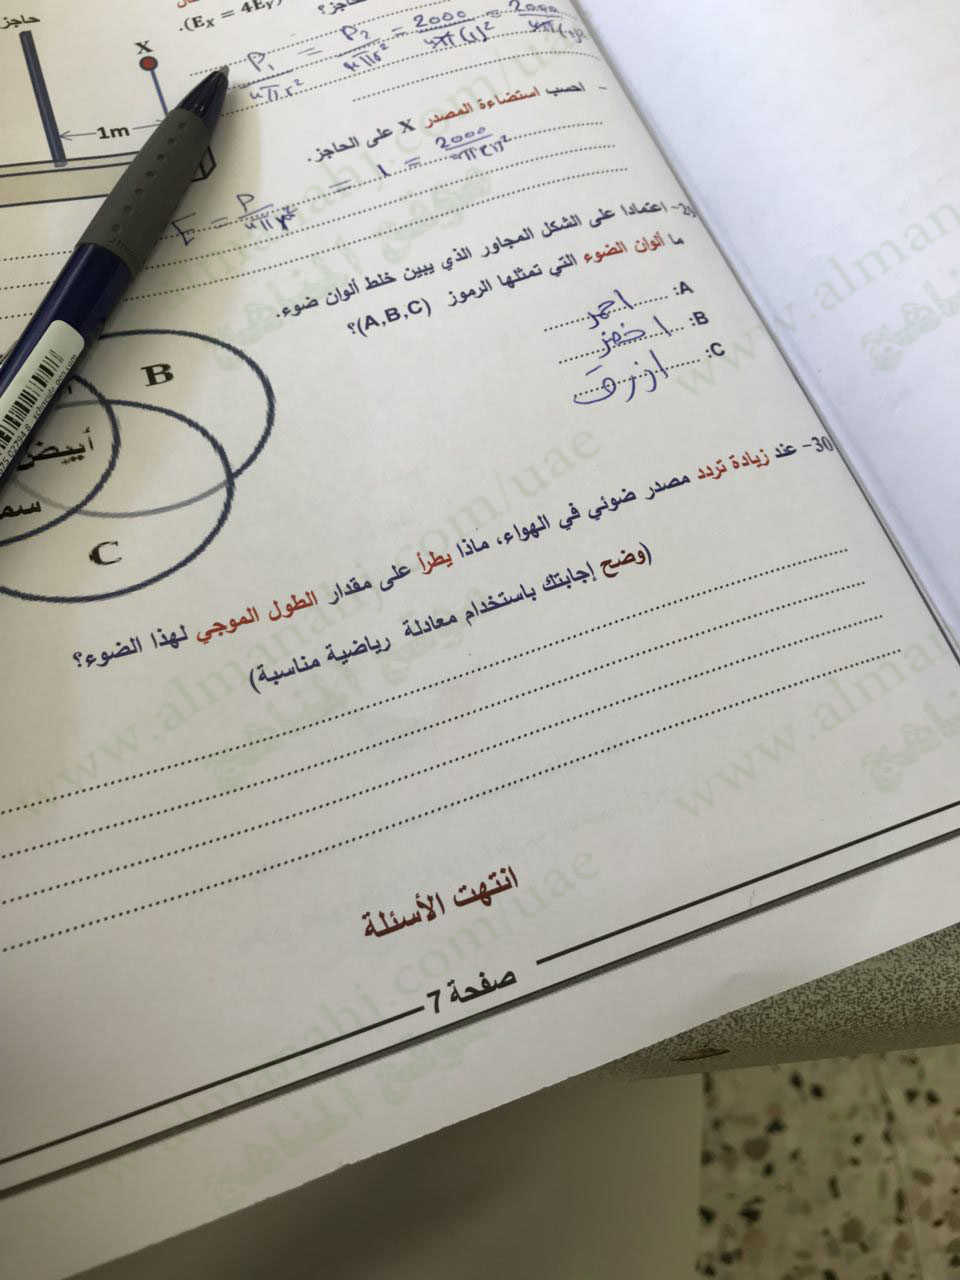 (Eₓ = 4Eᵧ).
حاجز؟
حاجز
X
1m
P₁/4πr² = P₂/4πr² = 2000/4π(1)² =
- احسب استضاءة المصدر X على الحاجز.
E = P/4πr² = 1 = 2000/4π(1)²
اعتمادا على الشكل المجاور الذي يبين خلط ألوان ضوء.
ما ألوان الضوء التي تمثلها الرموز (A,B,C)؟
A: احمر
B: اخضر
C: ازرق
B
أبيض
C
30- عند زيادة تردد مصدر ضوئي في الهواء، ماذا يطرأ على مقدار الطول الموجي لهذا الضوء؟
(وضح إجابتك باستخدام معادلة رياضية مناسبة)
انتهت الأسئلة
صفحة 7
www.almanahj.com/uae
موقع المناهج